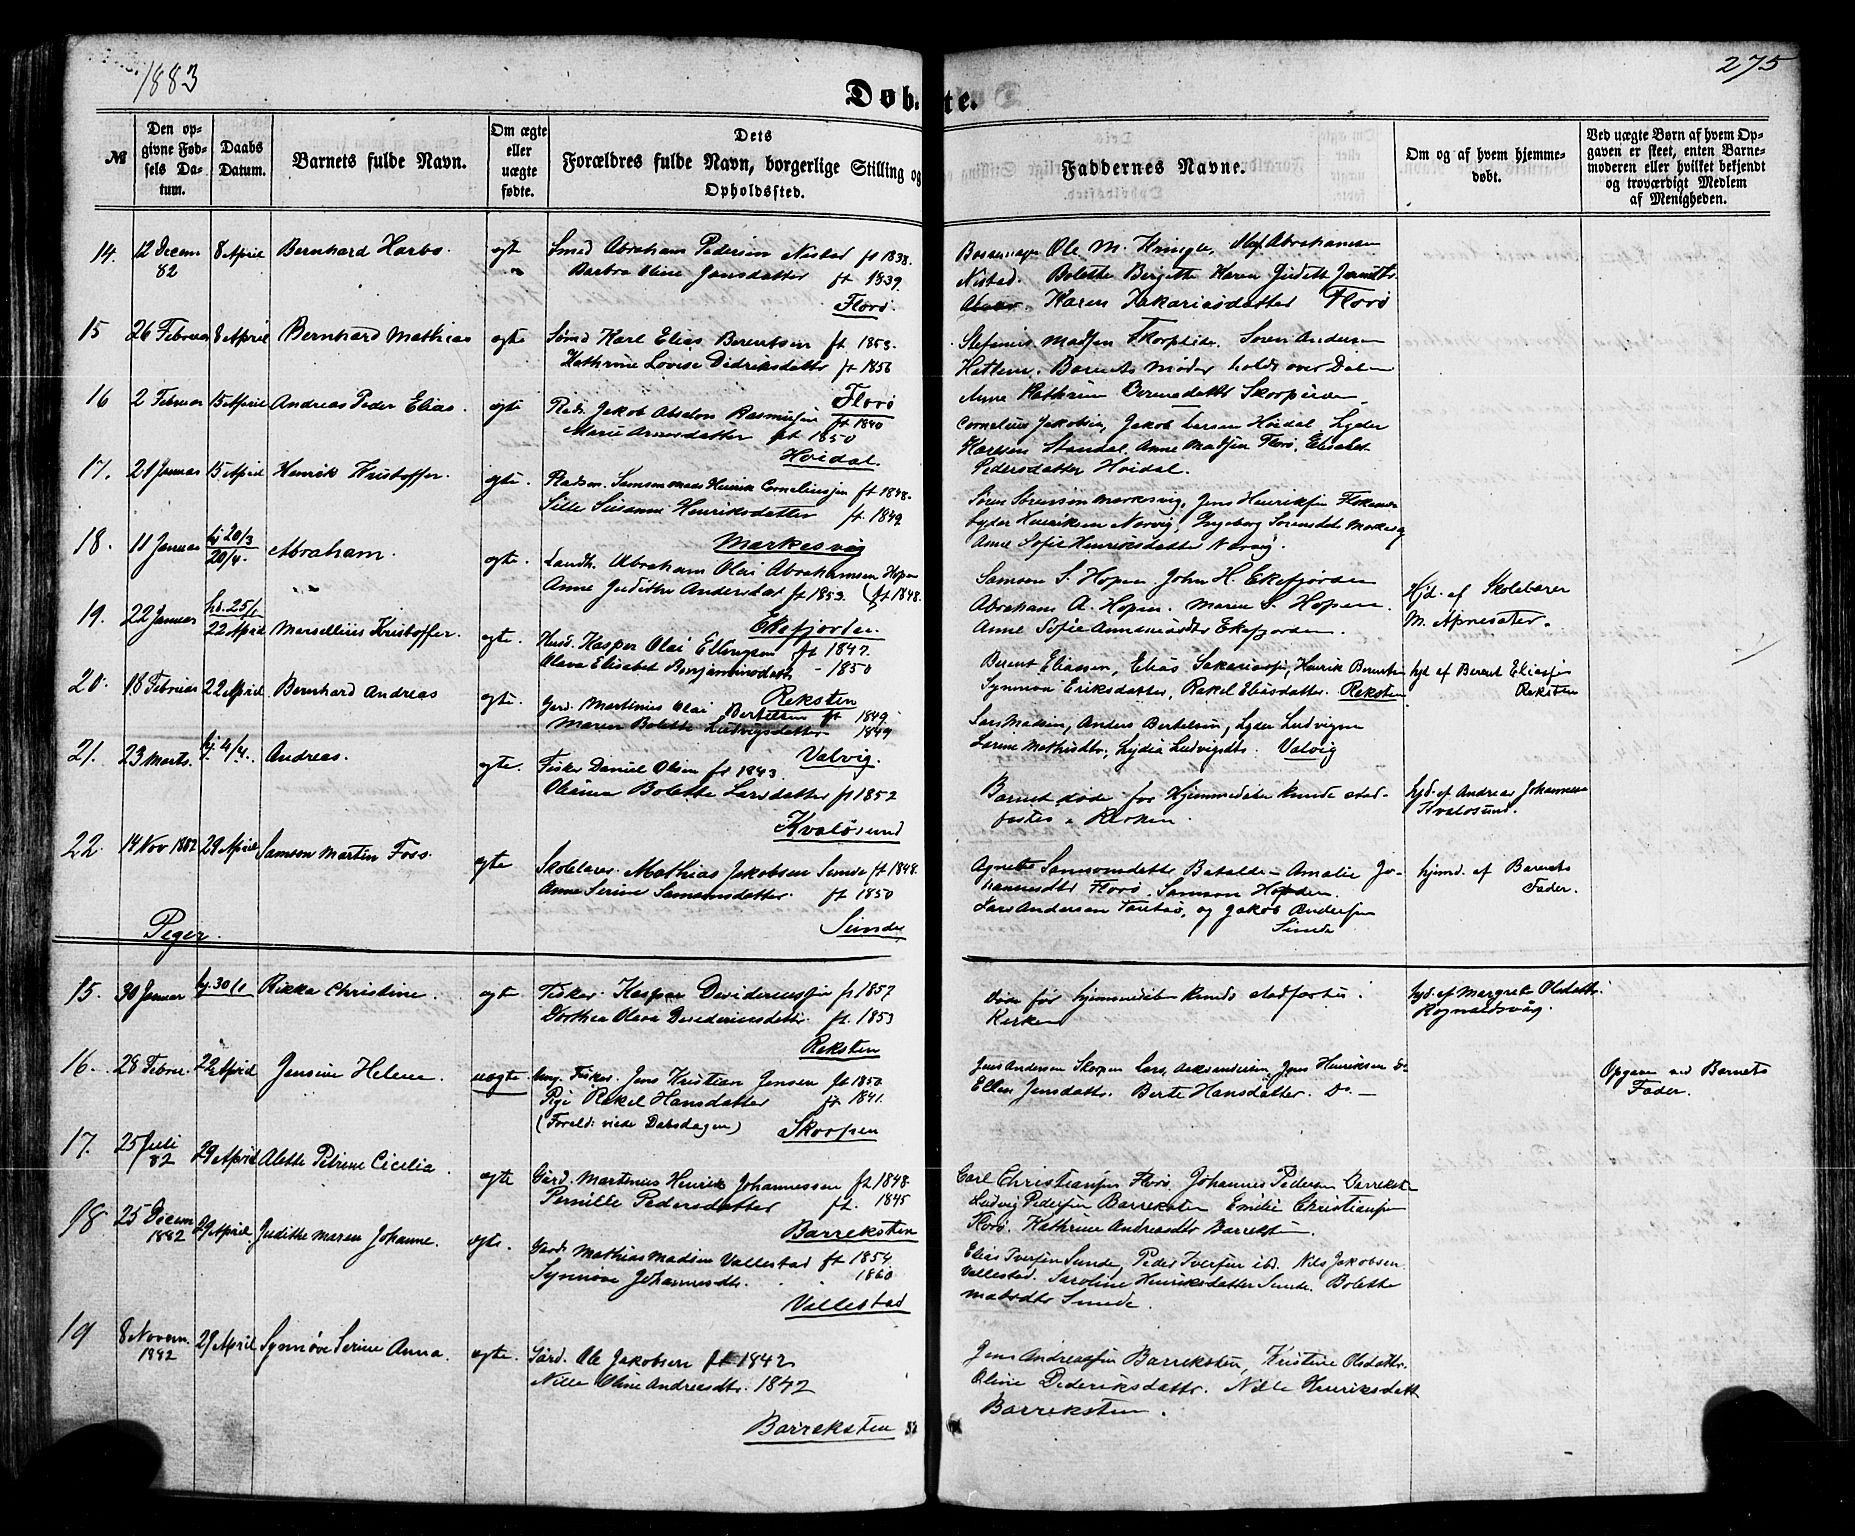 1883
275
Døbte.
№
Den opgivne Fødsels Datum.
Daabs Datum.
Barnets fulde Navn.
Om ægte eller uægte fødte.
Dets Forældres fulde Navn, borgerlige Stilling og Opholdssted.
Faddernes Navne.
Om og af hvem hjemmedøbt.
Ved uægte Børn af hvem Opgaven er skeet, enten Barnemoderen eller hvilket bekjendt og troværdigt Medlem af Menigheden.
14. 12 Decem 82 8 April Bernhard Harbo. ægte
Smed Abraham Pedersen Nistad ft 1838.
Barbra Oline Jansdatter ft 1839
Florø.
Ole M. Kringle, Abrahamsen
Nistad. Bolette Bergitte Karen Judith
Karen Zakariasdatter Florø
15 26 Februar 8 April Bernhard Mathias ægte
Karl Elias Berentsen ft 1853.
Kathrine Lovise Didriksdatter ft 1856
Florø
Stefanus Madsen Søren Andersen
Barnets Moder holdt over Daben
Anne Kathrine
16 2 Februar 15 April Andreas Peder Elias. ægte
Jakob Absalon Rasmussen ft 1840
Marie Arnesdatter ft 1850
Høidal.
Cornelius Jakobsen, Jakob Larsen Høidal, Lyder
Karsten Standal, Anne Madsen Florø, Elisabet
Pedersdatter Høidal.
17. 21 Januar 15 April Henrik Kristoffer. ægte.
Pladsm. Samson Mads Henrik Corneliussen ft 1848.
Sille Susanne Henriksdatter ft. 1849
Markesvig
Søren Sørensen Markesvig, Jens Henriksen
Lyder Henriksen Norvig, Ingeborg Sørensdat Markesvig
Anne Sofie Henriksdatter Norvig.
18. 11 Januar hj 20/3 20/4. Abraham. ægte.
Landh. Abraham Olai Abrahamsen Hopen
Anne Judithe Andersdat ft 1853. (ft 1848.
Ekefjorden.
Samson S. Hopen John H. Ekefjorden
Abraham A. Hopen. Maren S. Hopen.
Anne Sofie Ekefjorden.
Hjd. af Skolelærer
M. Apneseter.
19. 22 Januar hd. 25/1 22 April Marselius Kristoffer. ægte.
Husd. Kasper Olai Ellingsen ft 1847.
Olava Elisabet Benjaminsdatt - 1850
Reksten
Berent Eliassen, Elias Sakariassen, Henrik Berentsen
Synnøve Eriksdatter, Rakel Eliasdatter. Reksten
hjd af Berent Eliassen
Reksten
20. 18 Februar 22 April Bernhard Andreas ægte.
Gard. Martinus Olai Bertelsen ft 1849
Maren Bolette Ludvigsdatter 1849
Valvig.
Lars Madsen, Anders Bertelsen, Lyder Ludvigsen
Larine Mathisdtr, Lydia Ludvigsdtr. Valvig
21. 23 Marts. hj. 4/4. Andreas. ægte.
Fisker Daniel Olsen ft 1843.
Oliana Bolette Larsdatter ft 1852
Kvaløsund
Barnet døde før Hjemmedøbte kunde stad-
festes i Kirken.
hjd. af Andreas Johannesen
Kvalosund.
22. 14 Nov 1882 29 April Samson Martin Foss. ægte
Skolelærer Mathias Jakobsen Sunde ft 1848.
Anne Serine Samsonsdatter. ft 1850
Sunde
Agnethe Samsonsdatter Batalden Amalie Jo-
hannesdtr Florø. Samson Hopden
Lars Andersen Tansø, og Jakob Andersen
Sunde
hjmd. af Barnets
Fader.
Piger.
15. 30 Januar hj. 30/1 Rikka Christine. ægte
Fisker. Kasper Dideriksen ft 1857
Dorthea Olava ft. 1853
Reksten
Døde før Hjemmedåben kunde stadfestes i
Kirken
hjd. af Margrete Olsdatter
Rognaldsvåg.
16. 28 Febru. 29 April Jensine Helene. uægte
Ung. Fisker. Jens Kristian Jensen ft 1850
Pige Rakel Hansdatter ft 1841.
(Foreld: viede Dabsdagen) Skorpen
Jens Andersen Skorpen Lars Aleksandersen, Jens Henriksen Do
Ellen Jensdattr. Berte Hansdatter. Do -
Opgave ved Barnets
Fader.
17. 25 Juli 82 29 April Alette Petrine Cicelia. ægte
Gård. Martinus Henrik Johannessen ft 1848
Pernille Pedersdatter ft. 1845
Barreksten
Carl Christiansen Florø, Johannes Pedersen Barreksten
Ludvig Pedersen Barreksten Emilie Christiansen
Florø. Kathrine Andreasdtr Barreksten.
18 25 Decem 1882 29 April. Judithe Maren Johanne. ægte.
Gard. Mathias Madsen Vallestad ft 1854
Synnøve Johannesdtr. 1860
Vallestad
Elias Iversen Sunde, Peder Iversen ibd. Nils Jakobsen
Vallestad. Saroline Henriksdatter Sunde. Bolette
Matsdtr Sunde.
19 8 Novem. 1882 29 April Synnøve Serine Anna. ægte.
Gård. Ole Jakobsen ft 1842
Nille Oline Andreasdtr. 1842
Barreksten
Jens Andreassen Barreksten, Kristine Olsdattr.
Oline Dideriksdattr. Nille Henriksdatt
Barreksten.